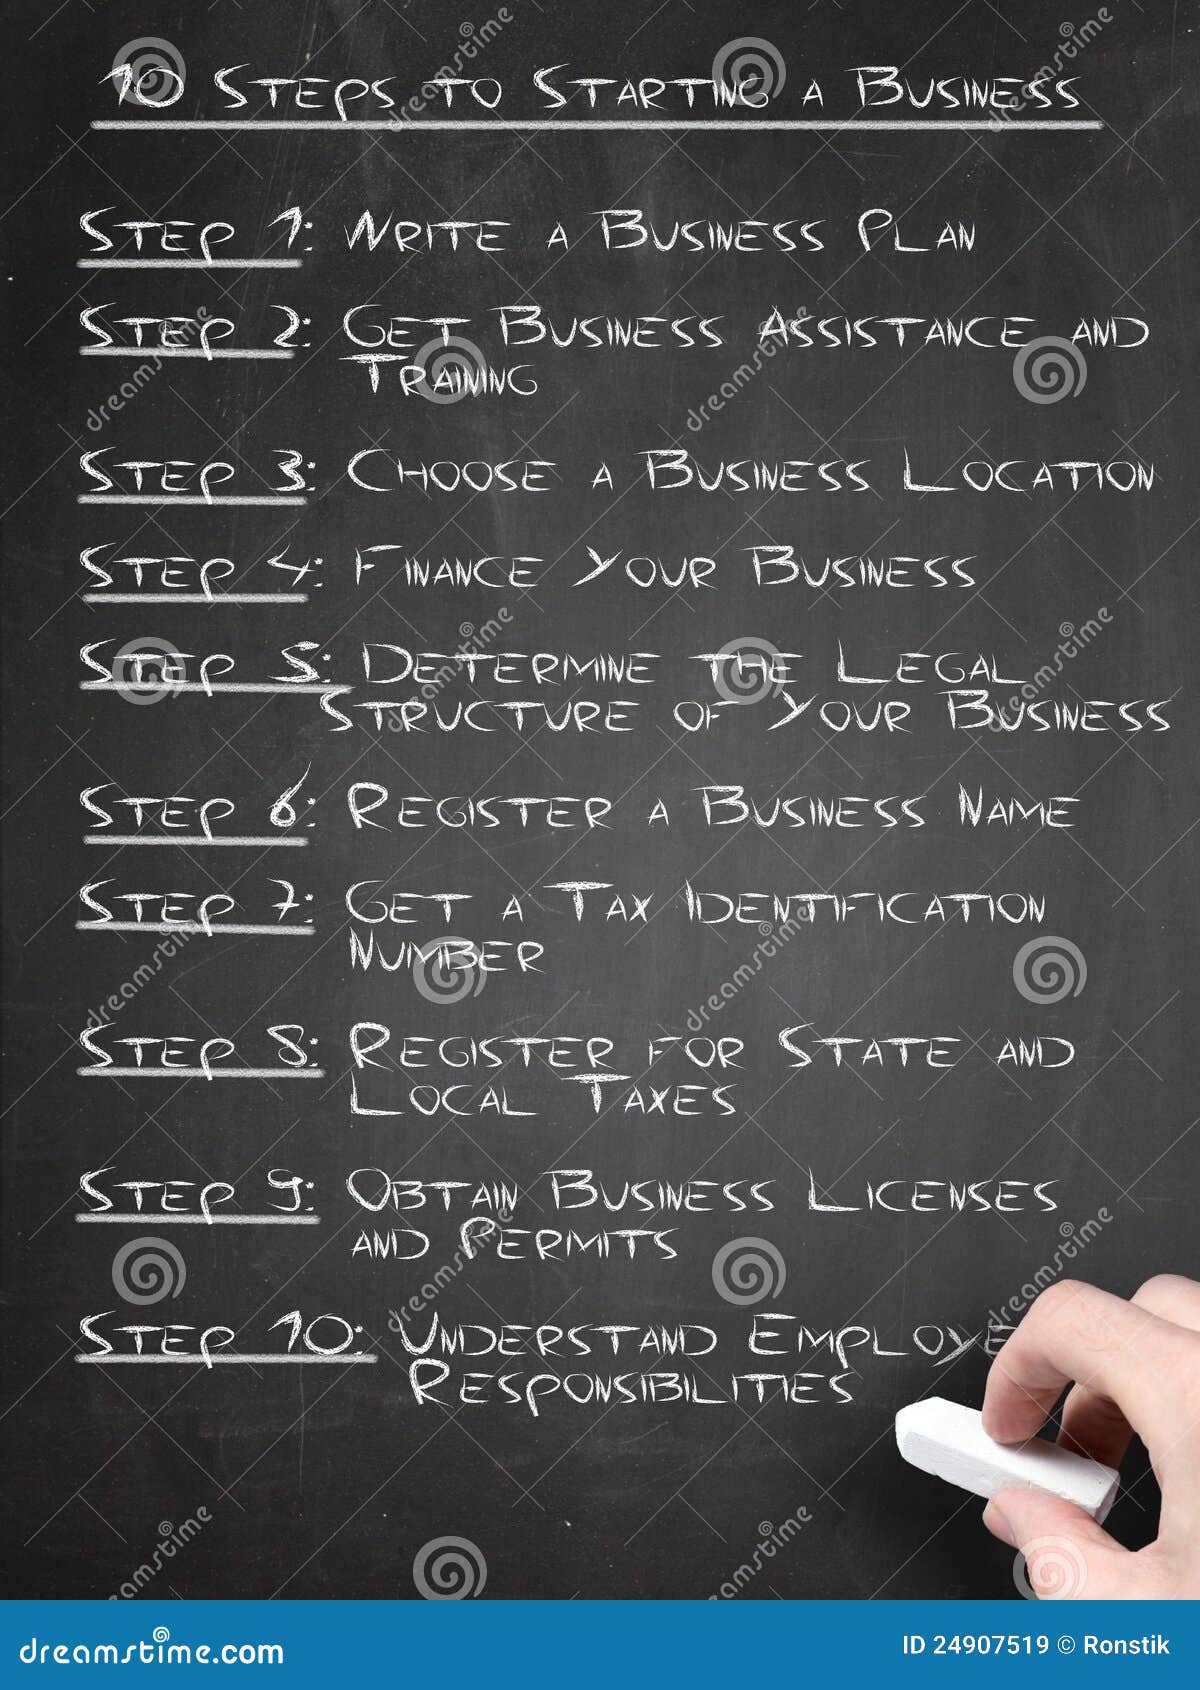 10 Steps to Starting a Business
Step 1: Write a Business Plan
Step 2: Get Business Assistance and
Training
Step 3: Choose a Business Location
Step 4: Finance Your Business
Step 5: Determine the Legal
Structure of Your Business
Step 6: Register a Business Name
Step 7: Get a Tax Identification
Number
Step 8: Register for State and
Local Taxes
Step 9: Obtain Business Licenses
and Permits
Step 10: Understand Employe
Responsibilities
dreamstime.com
ID 24907519 © Ronstik